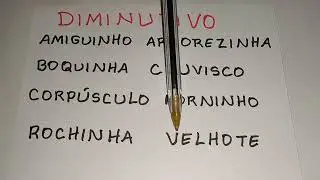 DIMINUTIVO
AMIGUINHO ARVOREZINHA
BOQUINHA CHUVISCO
CORPÚSCULO
ROCHINHA VELHOTE